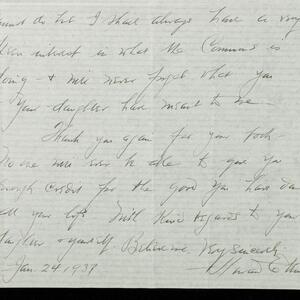 must do but I shall always have a very
keen interest in what the Commons is
doing & will never forget what you
& your daughter have meant to me —
Thank you again for your book
No one will ever be able to give you
enough credit for the good you have done
all your life. With kind regards to your
daughter & yourself. Believe me. Very sincerely
Jan. 24 1937